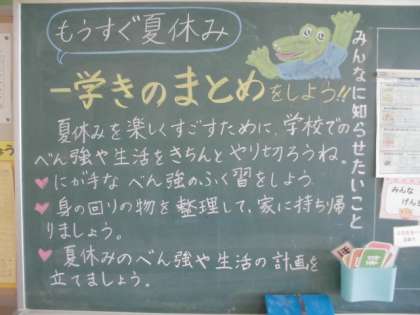 もうすぐ夏休み
みんなに知らせたいこと
一学きのまとめをしよう!!
夏休みを楽しくすごすために、学校での
べん強や生活をきちんとやり切ろうね。
にが手なべん強のふく習をしよう
身の回りの物を整理して、家に持ち帰
りましょう。
夏休みのべん強や生活の計画を
立てましょう。